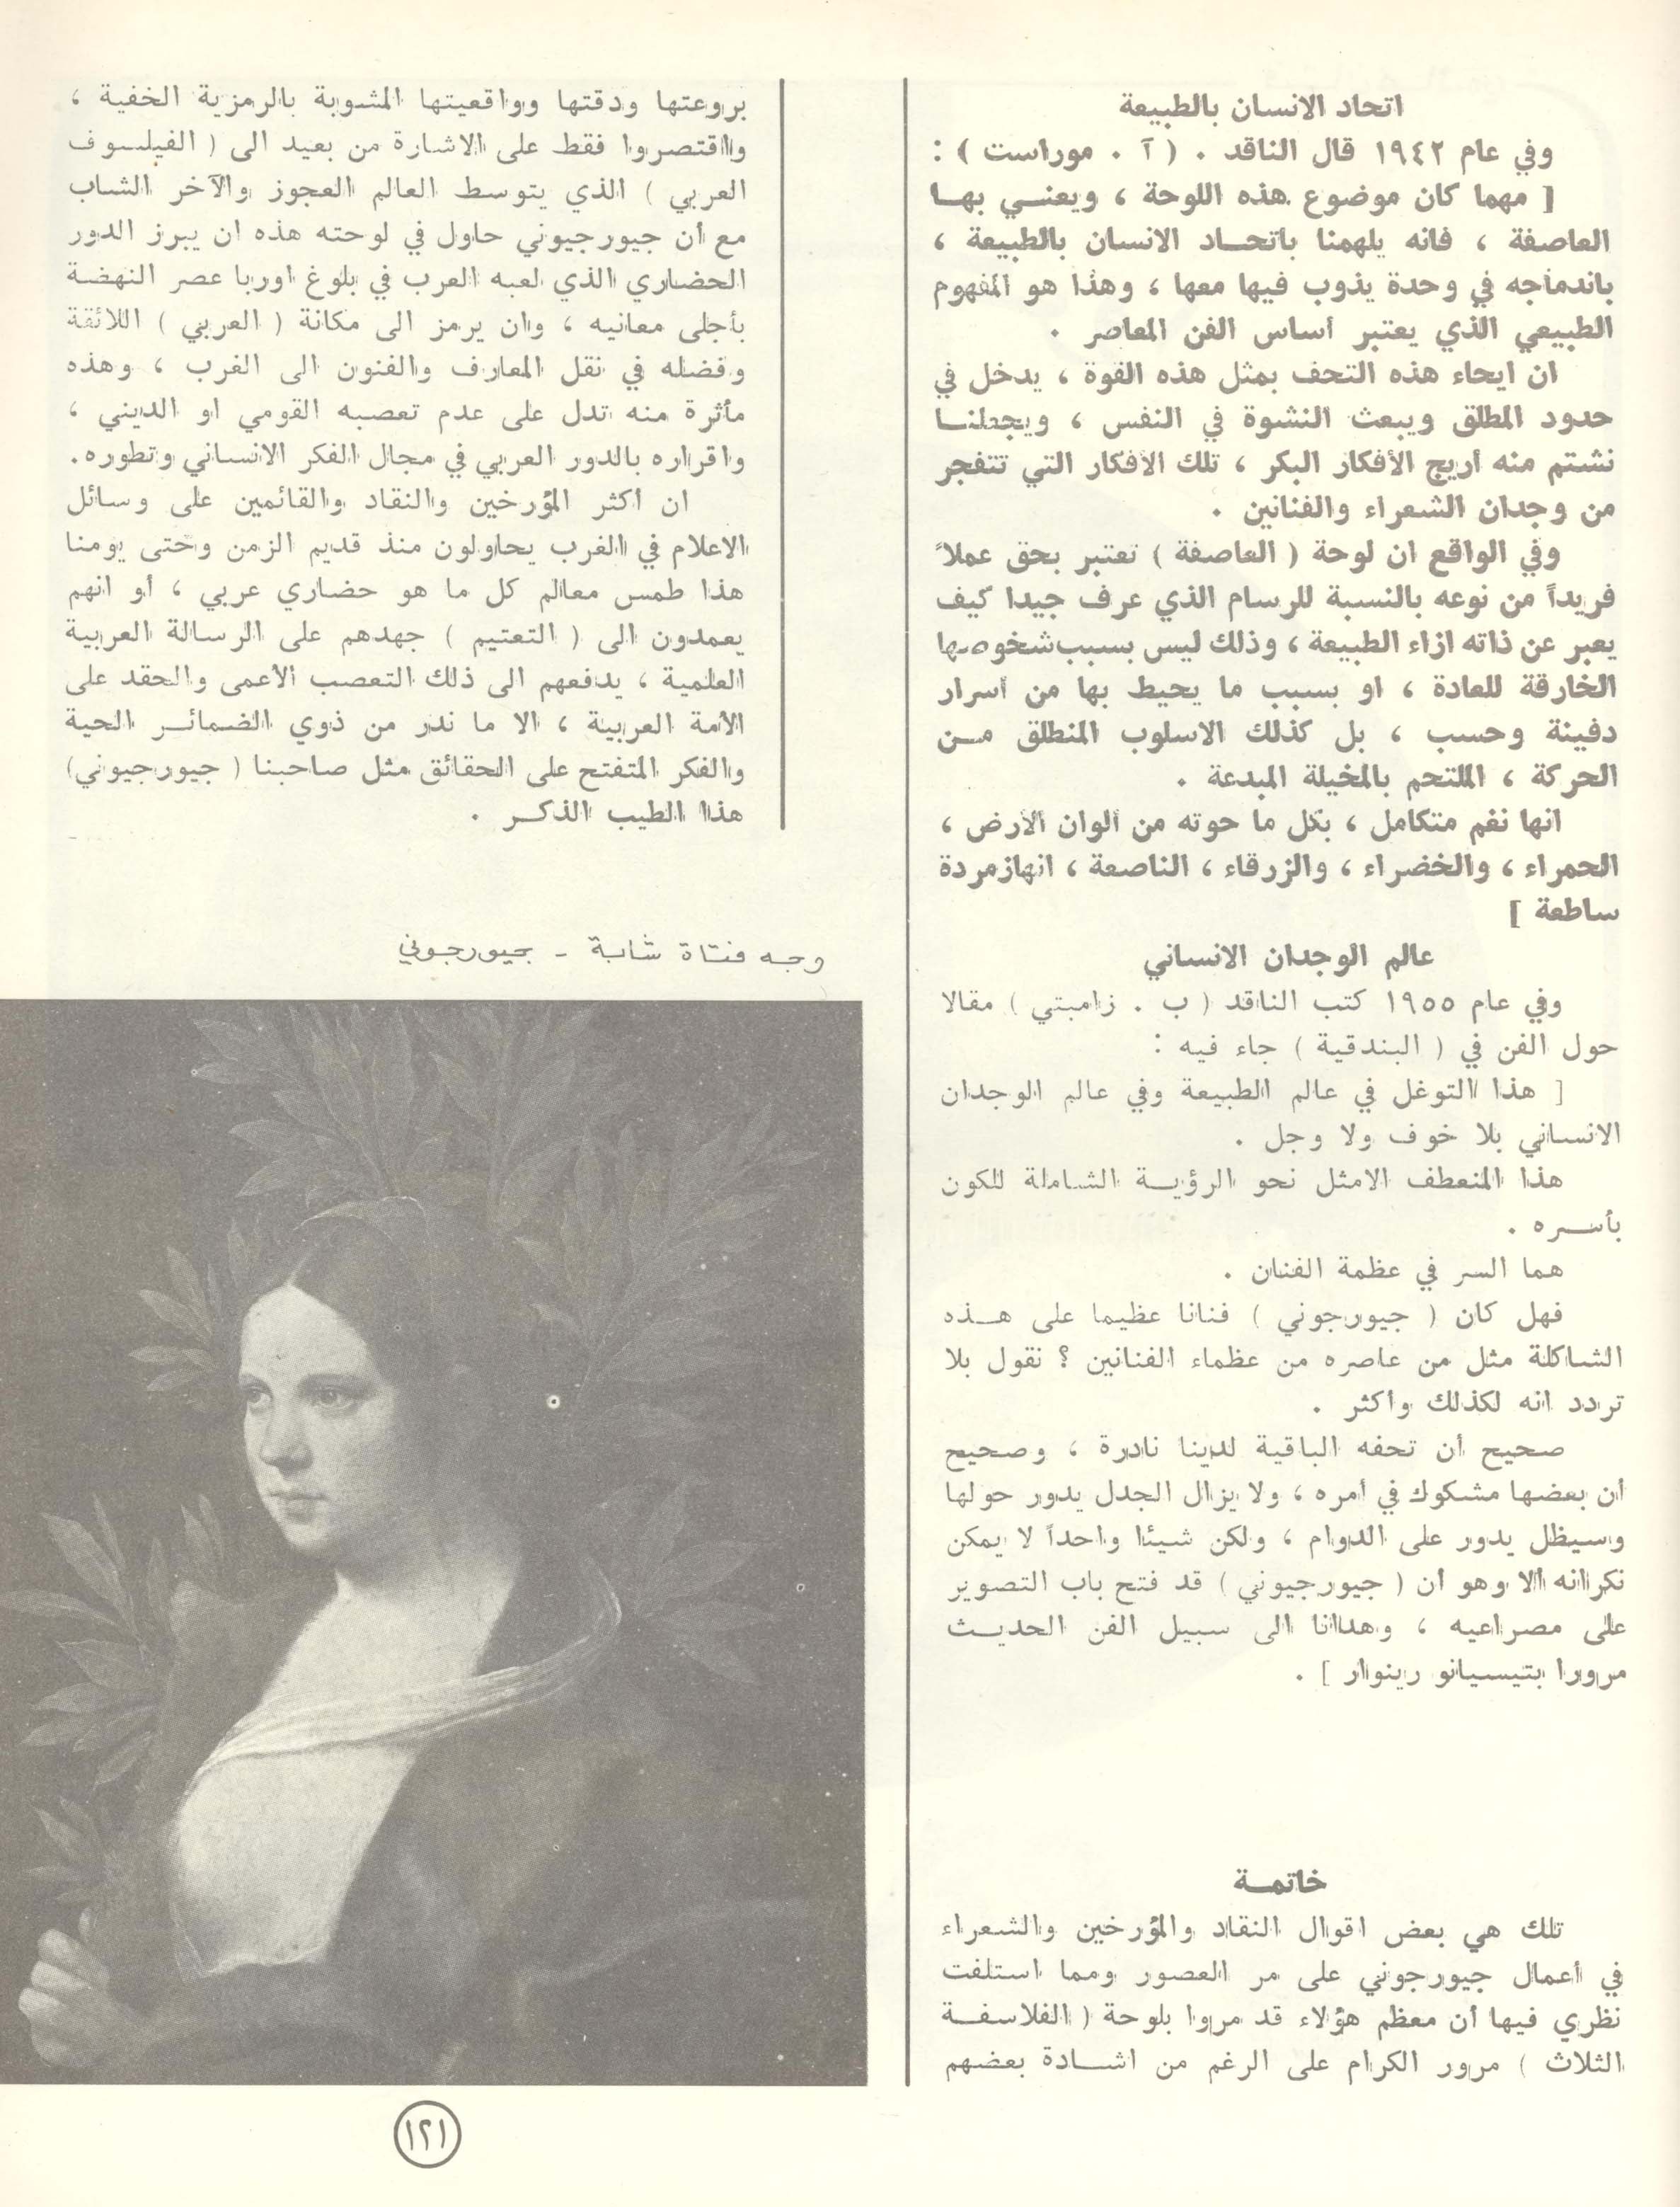 اتحاد الانسان بالطبيعة
وفي عام ١٩٤٢ قال الناقد . ( آ . موراست ) :
[ مهما كان موضوع هذه اللوحة ، ويعنــي بهــا
العاصفة ، فانه يلهمنا باتحــاد الانسان بالطبيعة ،
باندماجه في وحدة يذوب فيها معها ، وهذا هو المفهوم
الطبيعي الذي يعتبر أساس الفن المعاصر .
ان ايحاء هذه التحف بمثل هذه القوة ، يدخل في
حدود المطلق ويبعث النشوة في النفس ، ويجعلنــا
نشتم منه أريج الأفكار البكر ، تلك الأفكار التي تتفجر
من وجدان الشعراء والفنانين .
وفي الواقع ان لوحة ( العاصفة ) تعتبر بحق عملاً
فريداً من نوعه بالنسبة للرسام الذي عرف جيدا كيف
يعبر عن ذاته ازاء الطبيعة ، وذلك ليس بسبب شخوصها
الخارقة للعادة ، او بسبب ما يحيط بها من أسرار
دفينة وحسب ، بل كذلك الاسلوب المنطلق مــن
الحركة ، الملتحم بالمخيلة المبدعة .
انها نغم متكامل ، بكل ما حوته من ألوان الأرض ،
الحمراء ، والخضراء ، والزرقاء ، الناصعة ، انها زمردة
ساطعة ]
عالم الوجدان الانساني
وفي عام ١٩٥٥ كتب الناقد ( ب . زامبتي ) مقالا
حول الفن في ( البندقية ) جاء فيه :
[ هذا التوغل في عالم الطبيعة وفي عالم الوجدان
الانساني بلا خوف ولا وجل .
هذا المنعطف الامثل نحو الرؤيــة الشاملة للكون
بأســره .
هما السر في عظمة الفنان .
فهل كان ( جيورجوني ) فنانا عظيما على هــذه
الشاكلة مثل من عاصره من عظماء الفنانين ؟ نقول بلا
تردد انه لكذلك واكثر .
صحيح أن تحفه الباقية لدينا نادرة ، وصحيح
أن بعضها مشكوك في أمره ، ولا يزال الجدل يدور حولها
وسيظل يدور على الدوام ، ولكن شيئا واحداً لا يمكن
نكرانه الا وهو ان ( جيورجيوني ) قد فتح باب التصوير
على مصراعيه ، وهدانا الى سبيل الفن الحديــث
مرورا بتيسيانو رينوار ] .
خاتمــة
تلك هي بعض اقوال النقاد والمؤرخين والشعراء
في أعمال جيورجوني على مر العصور ومما استلفت
نظري فيها أن معظم هؤلاء قد مروا بلوحة ( الفلاسفــة
الثلاث ) مرور الكرام على الرغم من اشــادة بعضهم
بروعتها ودقتها وواقعيتها المشوبة بالرمزية الخفية ،
واقتصروا فقط على الاشارة من بعيد الى ( الفيلسوف
العربي ) الذي يتوسط العالم العجوز والآخر الشاب
مع أن جيورجيوني حاول في لوحته هذه ان يبرز الدور
الحضاري الذي لعبه العرب في بلوغ اوربا عصر النهضة
بأجلى معانيه ، وان يرمز الى مكانة ( العربي ) اللائقة
وفضله في نقل المعارف والفنون الى الغرب ، وهذه
مأثرة منه تدل على عدم تعصبه القومي او الديني ،
واقراره بالدور العربي في مجال الفكر الانساني وتطوره.
ان اكثر المؤرخين والنقاد والقائمين على وسائل
الاعلام في الغرب يحاولون منذ قديم الزمن وحتى يومنا
هذا طمس معالم كل ما هو حضاري عربي ، أو انهم
يعمدون الى ( التعتيم ) جهدهم على الرسالة العربية
العلمية ، يدفعهم الى ذلك التعصب الأعمى والحقد على
الأمة العربية ، الا ما ندر من ذوي الضمائــر الحية
والفكر المتفتح على الحقائق مثل صاحبنا ( جيورجيوني)
هذا الطيب الذكــر .
وجه فتاة شابة - جيورجوني
١٢١